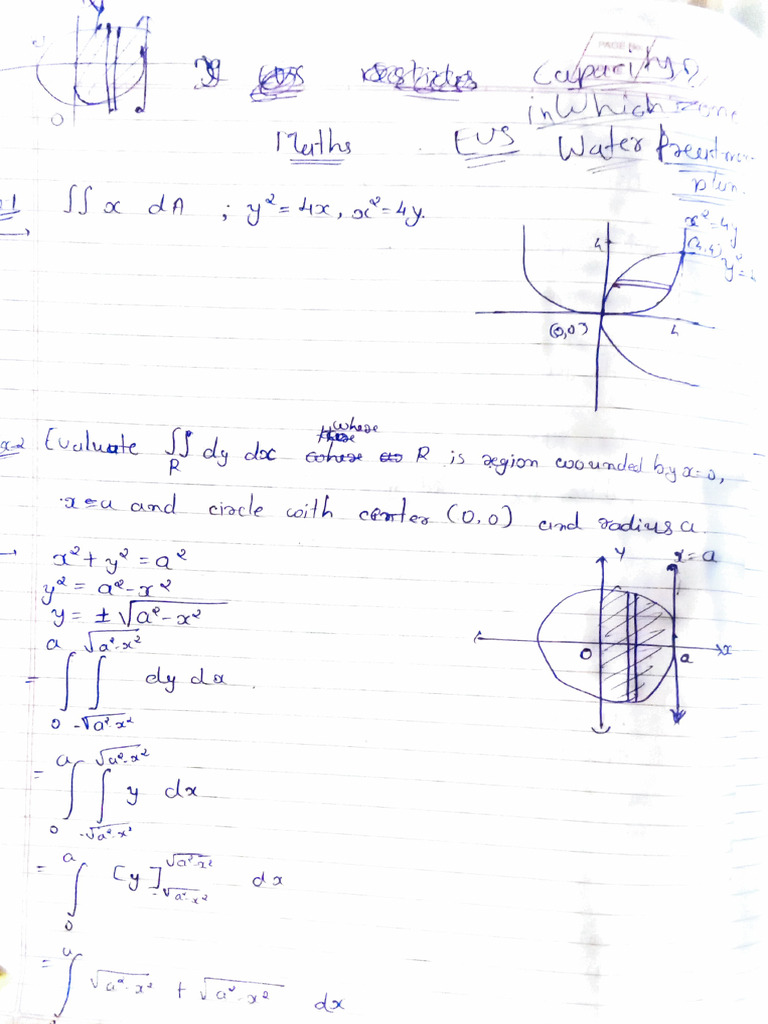 Capacity
in Which Zone
Maths EUS Water
∬ x dA ; y² = 4x, x² = 4y.
x² = 4y
(4,4)
4
(0,0) 4
Evaluate ∬ dy dx where R is region wounded by x=0,
R
x=a and circle with center (0,0) and radius a.
→ x² + y² = a²
y² = a² - x²
y = ± √a² - x²
y x = a
O a x
= ∫₀ᵃ ∫_{-√a²-x²}^{√a²-x²} dy dx.
= ∫₀ᵃ ∫_{-√a²-x²}^{√a²-x²} y dx
= ∫₀ᵃ [y]_{-√a²-x²}^{√a²-x²} dx
= ∫ᵃ √a²-x² + √a²-x² dx